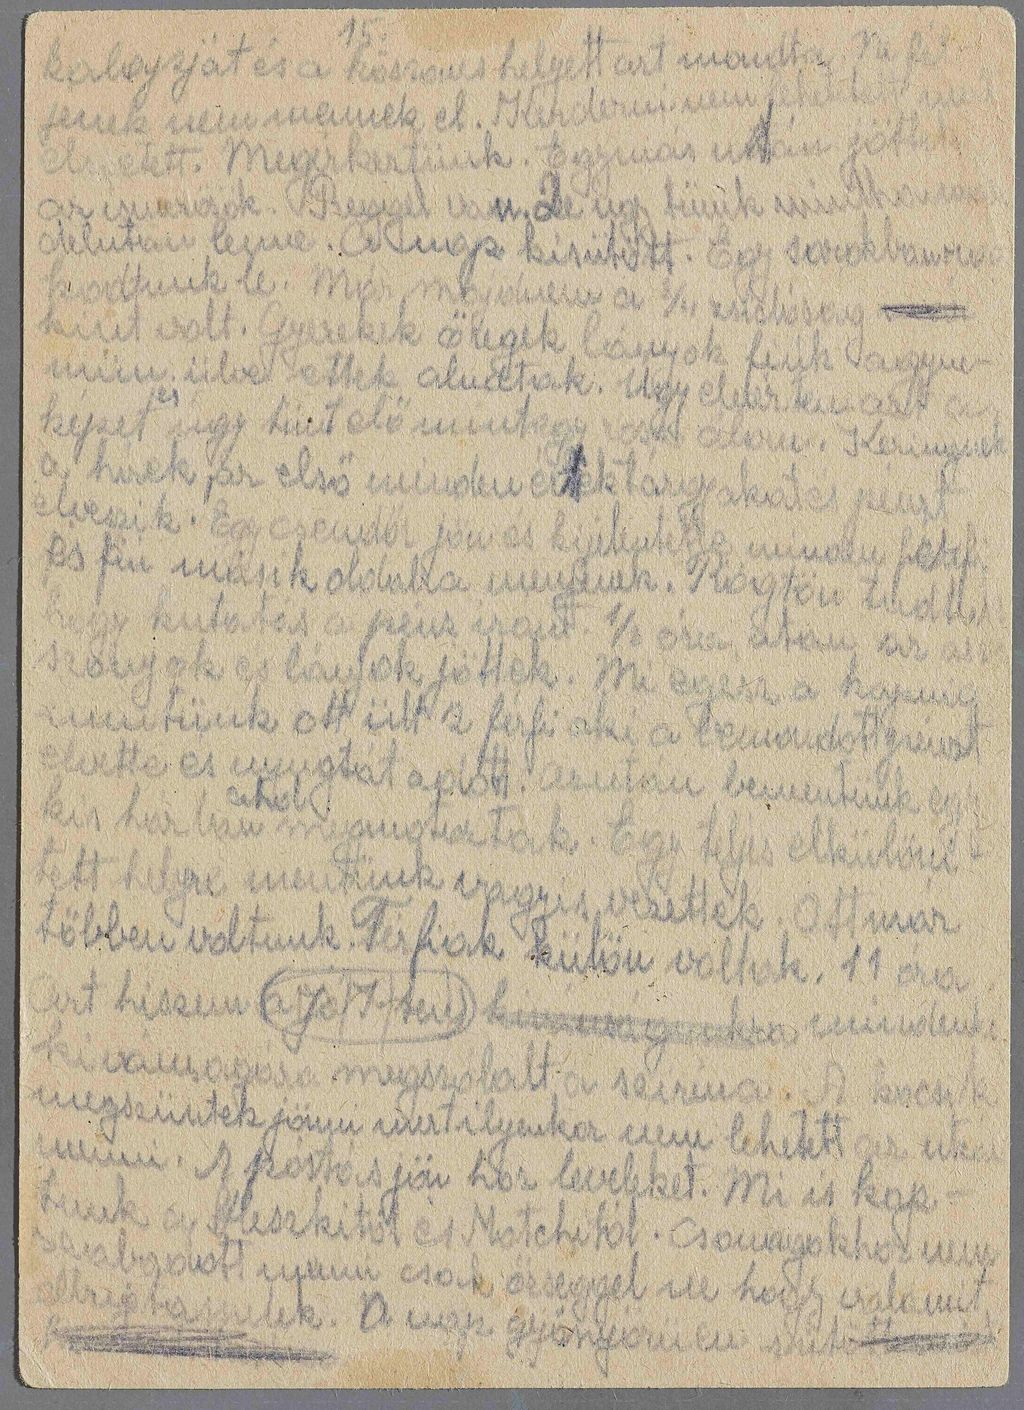 15.
kalapját és a köszönés helyett azt mondta. Ne fél
jenek nem mennek el. Kérdezni nem lehetett mert
elsietett. Megérkeztünk. Egymás után jöttek
az ismerősök. Reggel van. De úgy tünk mintha már
délután lenne. A nap kisütött. Egy sarokban
kodtunk le. Már majdnem a 3/4 zsidóság
kint volt. Gyerekek öregek lányok fiúk
ülve ettek aludtak. Úgy elnéztem ezt a
képet és úgy tünt elő mint egy rossz álom. Keringnek
a hírek, az első minden értéktárgyakat és pénzt
elveszik. Egy csendőr jön és kijelentette minden férfi
és fiú másik oldalra menjenek. Rögtön tudtuk
hogy kutatás a pénz iránt. 1/2 óra után az as
szonyok és lányok jöttek. Mi egész a kapuig
mentünk ott ült 2 férfi aki a bemondott pénzt
elvette és nyugtát adott. Azután bementünk egy
kis házban ahol megmotoztak. Egy teljes elkülöní-
tett helyre mentünk vagyis vezettek. Ott már
többen voltunk. Férfiak külön voltak. 11 óra
Azt hiszem a Jó I-ten kivánságunkra mindenki
kivánságára megszólalt a sziréna. A kocsik
megszüntek jönni mert ilyenkor nem lehetett az utcán
menni. A postás jön hoz leveleket. Mi is kap-
tunk a és Motchitól. Csomagokhoz nem
szabadott nyúni csak őrséggel ne hogy valamit
A nap gyönyörüen sütött